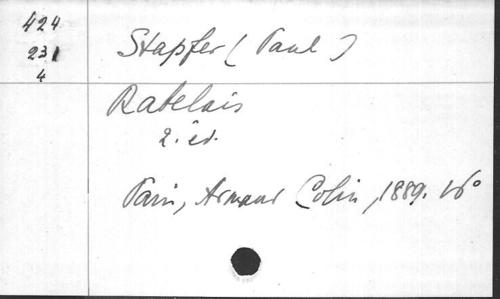 424
231
4
Stapfer (Paul)
Rabelais
2. éd.
Paris, Armand Colin, 1889. 16°